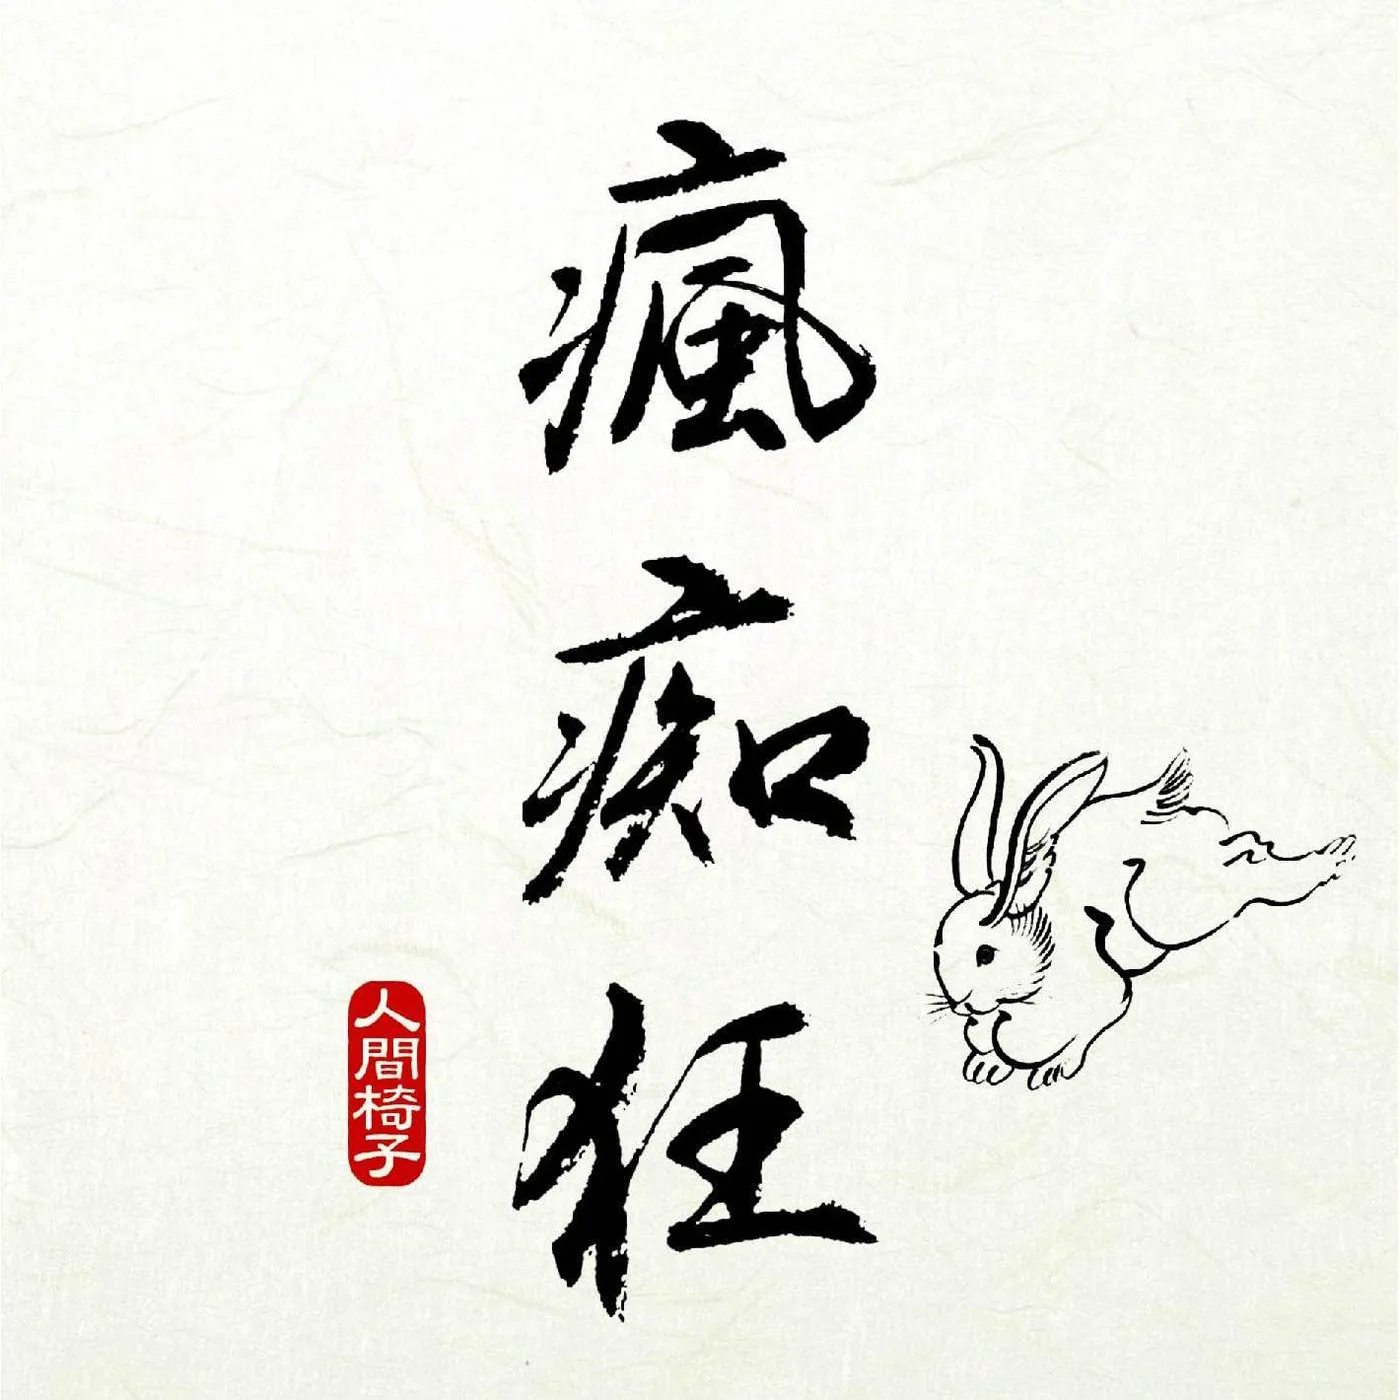 瘋痴狂
人間椅子